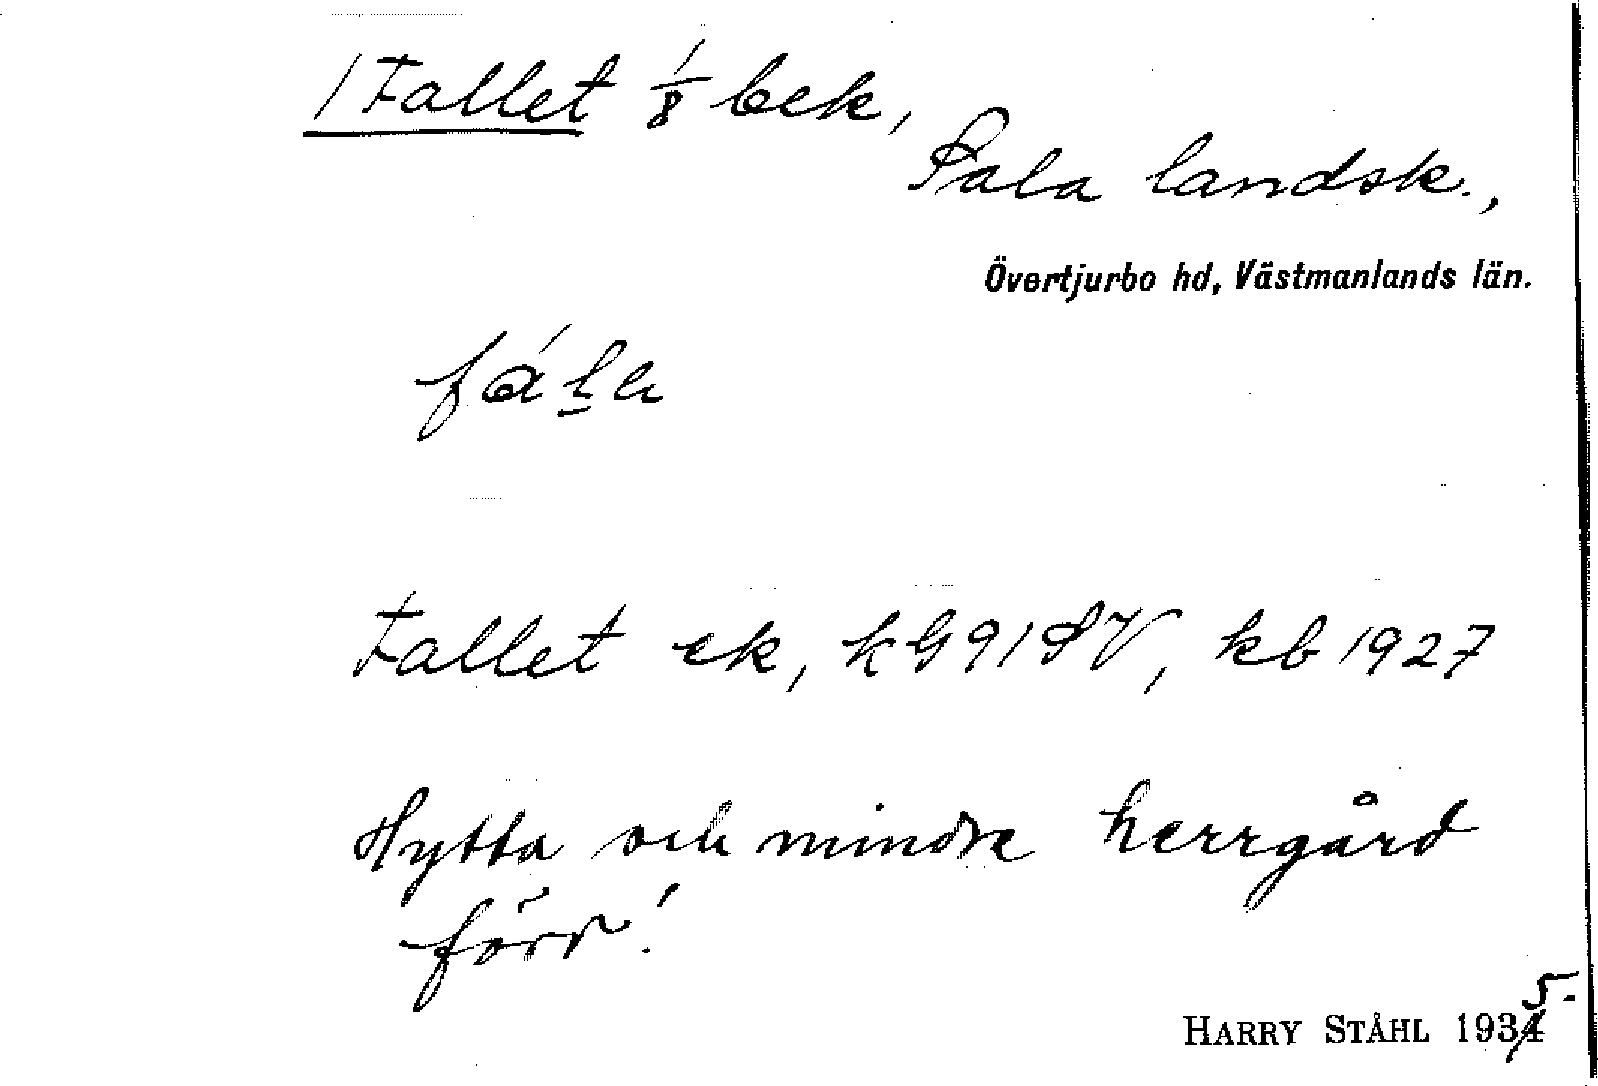 / Fallet 1/8 bek,
Sala landsk.,
Övertjurbo hd, Västmanlands län.
fál̲a
Fallet ek, kG91SV, kb 1927
Hytta och mindre herrgård
förr!
HARRY STÅHL 1935.